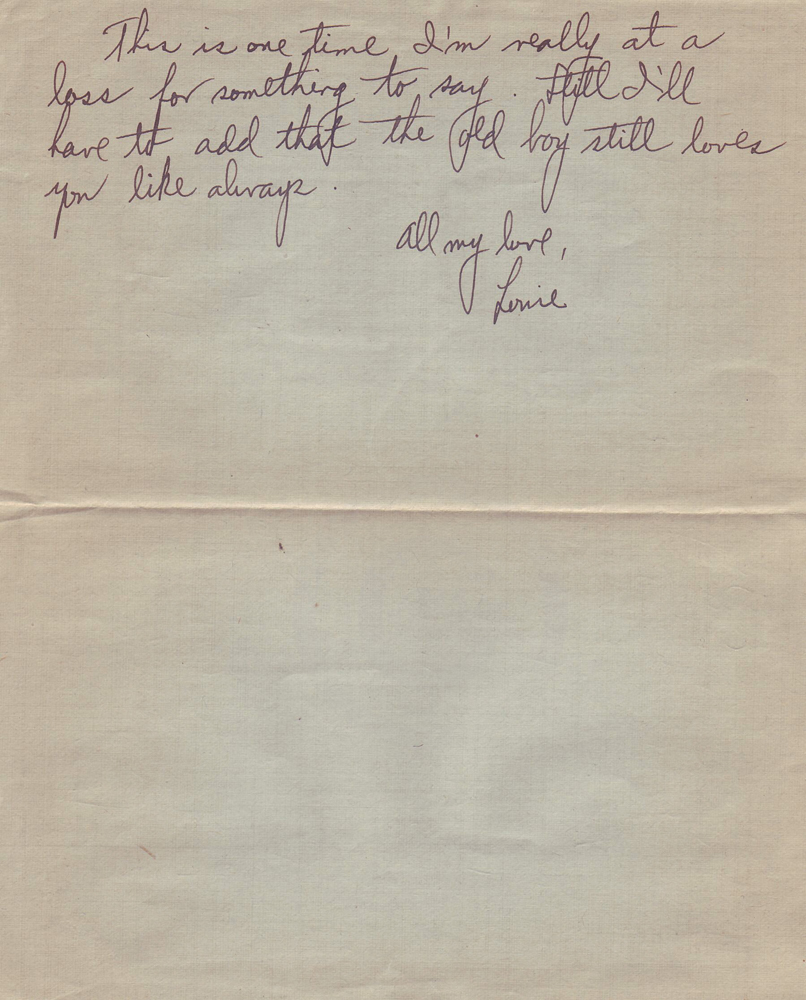 This is one time I'm really at a
loss for something to say. Still I'll
have to add that the old boy still loves
you like always.
All my love,
Louie